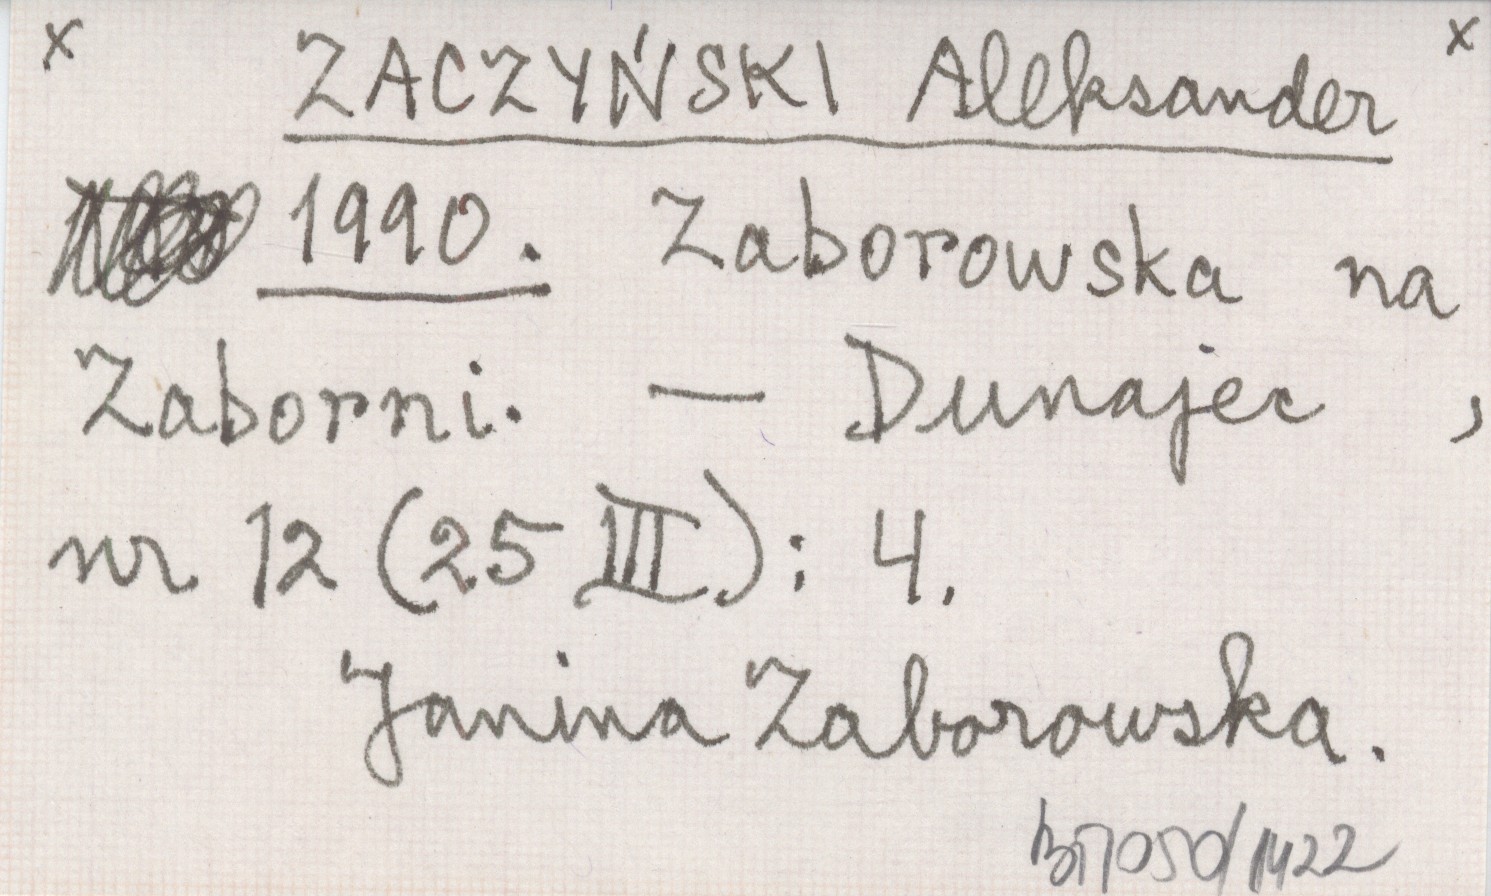 x ZACZYŃSKI Aleksander x
1990. Zaborowska na
Zaborni. — Dunajec,
nr 12 (25 III): 4.
Janina Zaborowska.